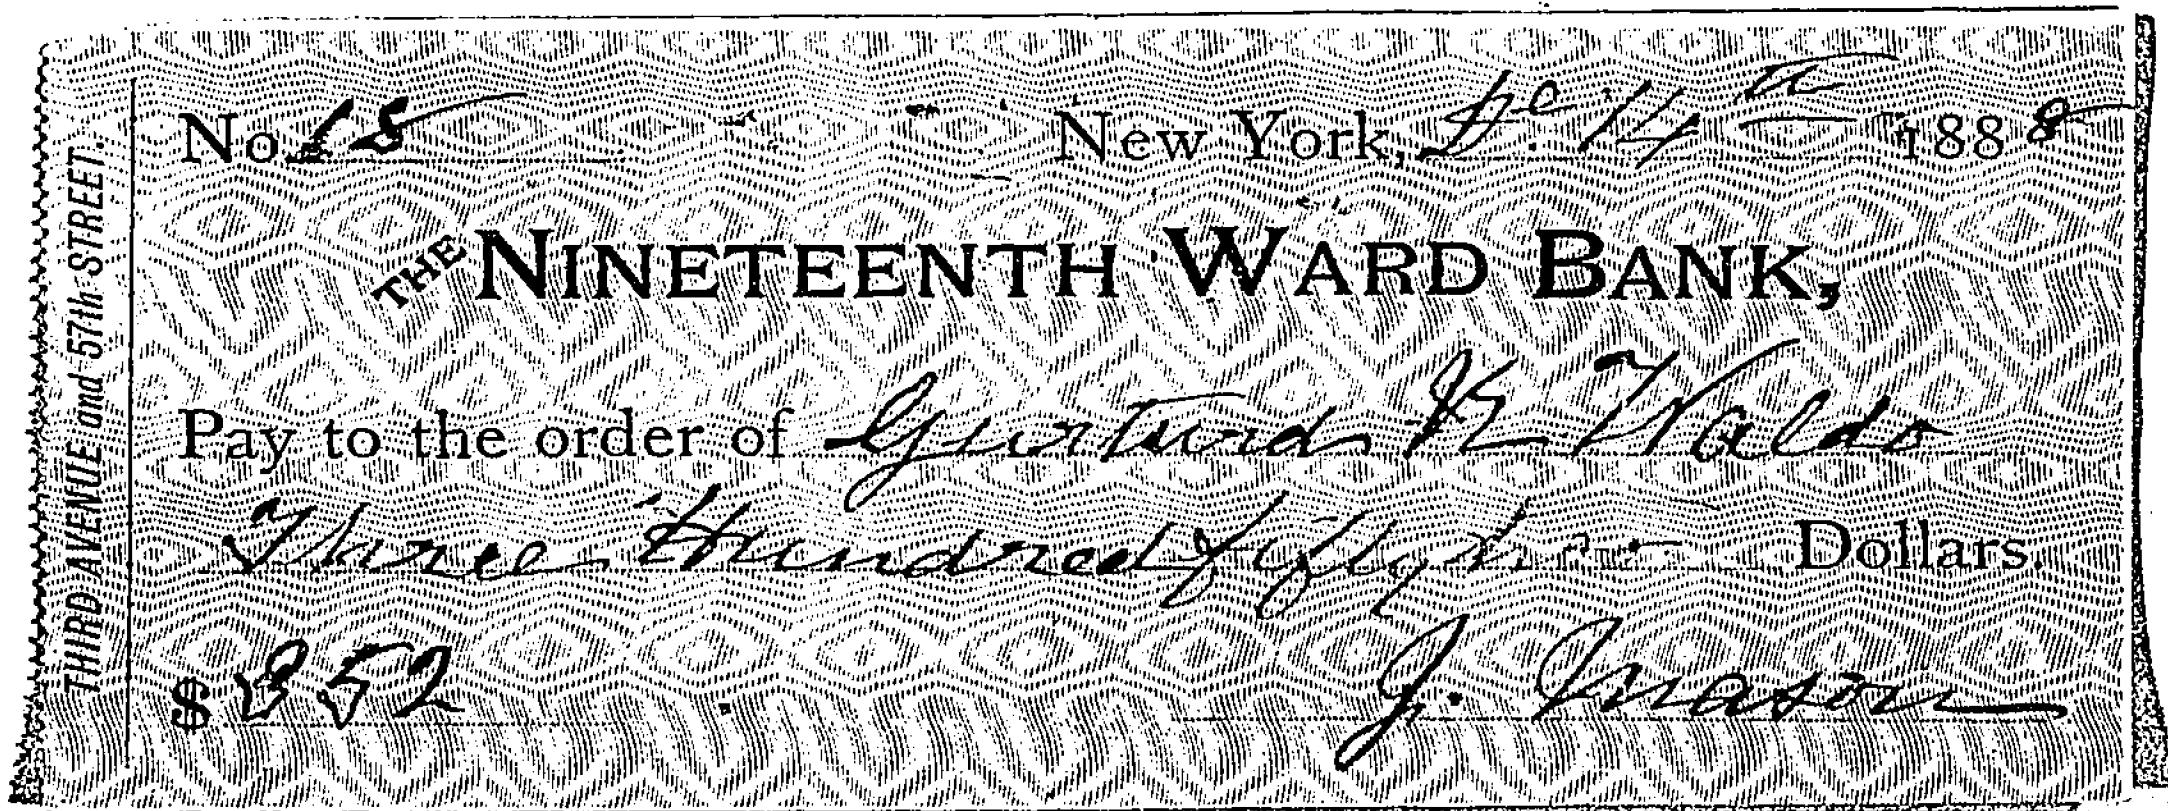 THIRD AVENUE and 57th STREET.
No. 18 New York, Dc. 14th 1888
THE NINETEENTH WARD BANK,
Pay to the order of Gurturd K Waldo
Three Hundred fifty two Dollars.
$352 J. Mason